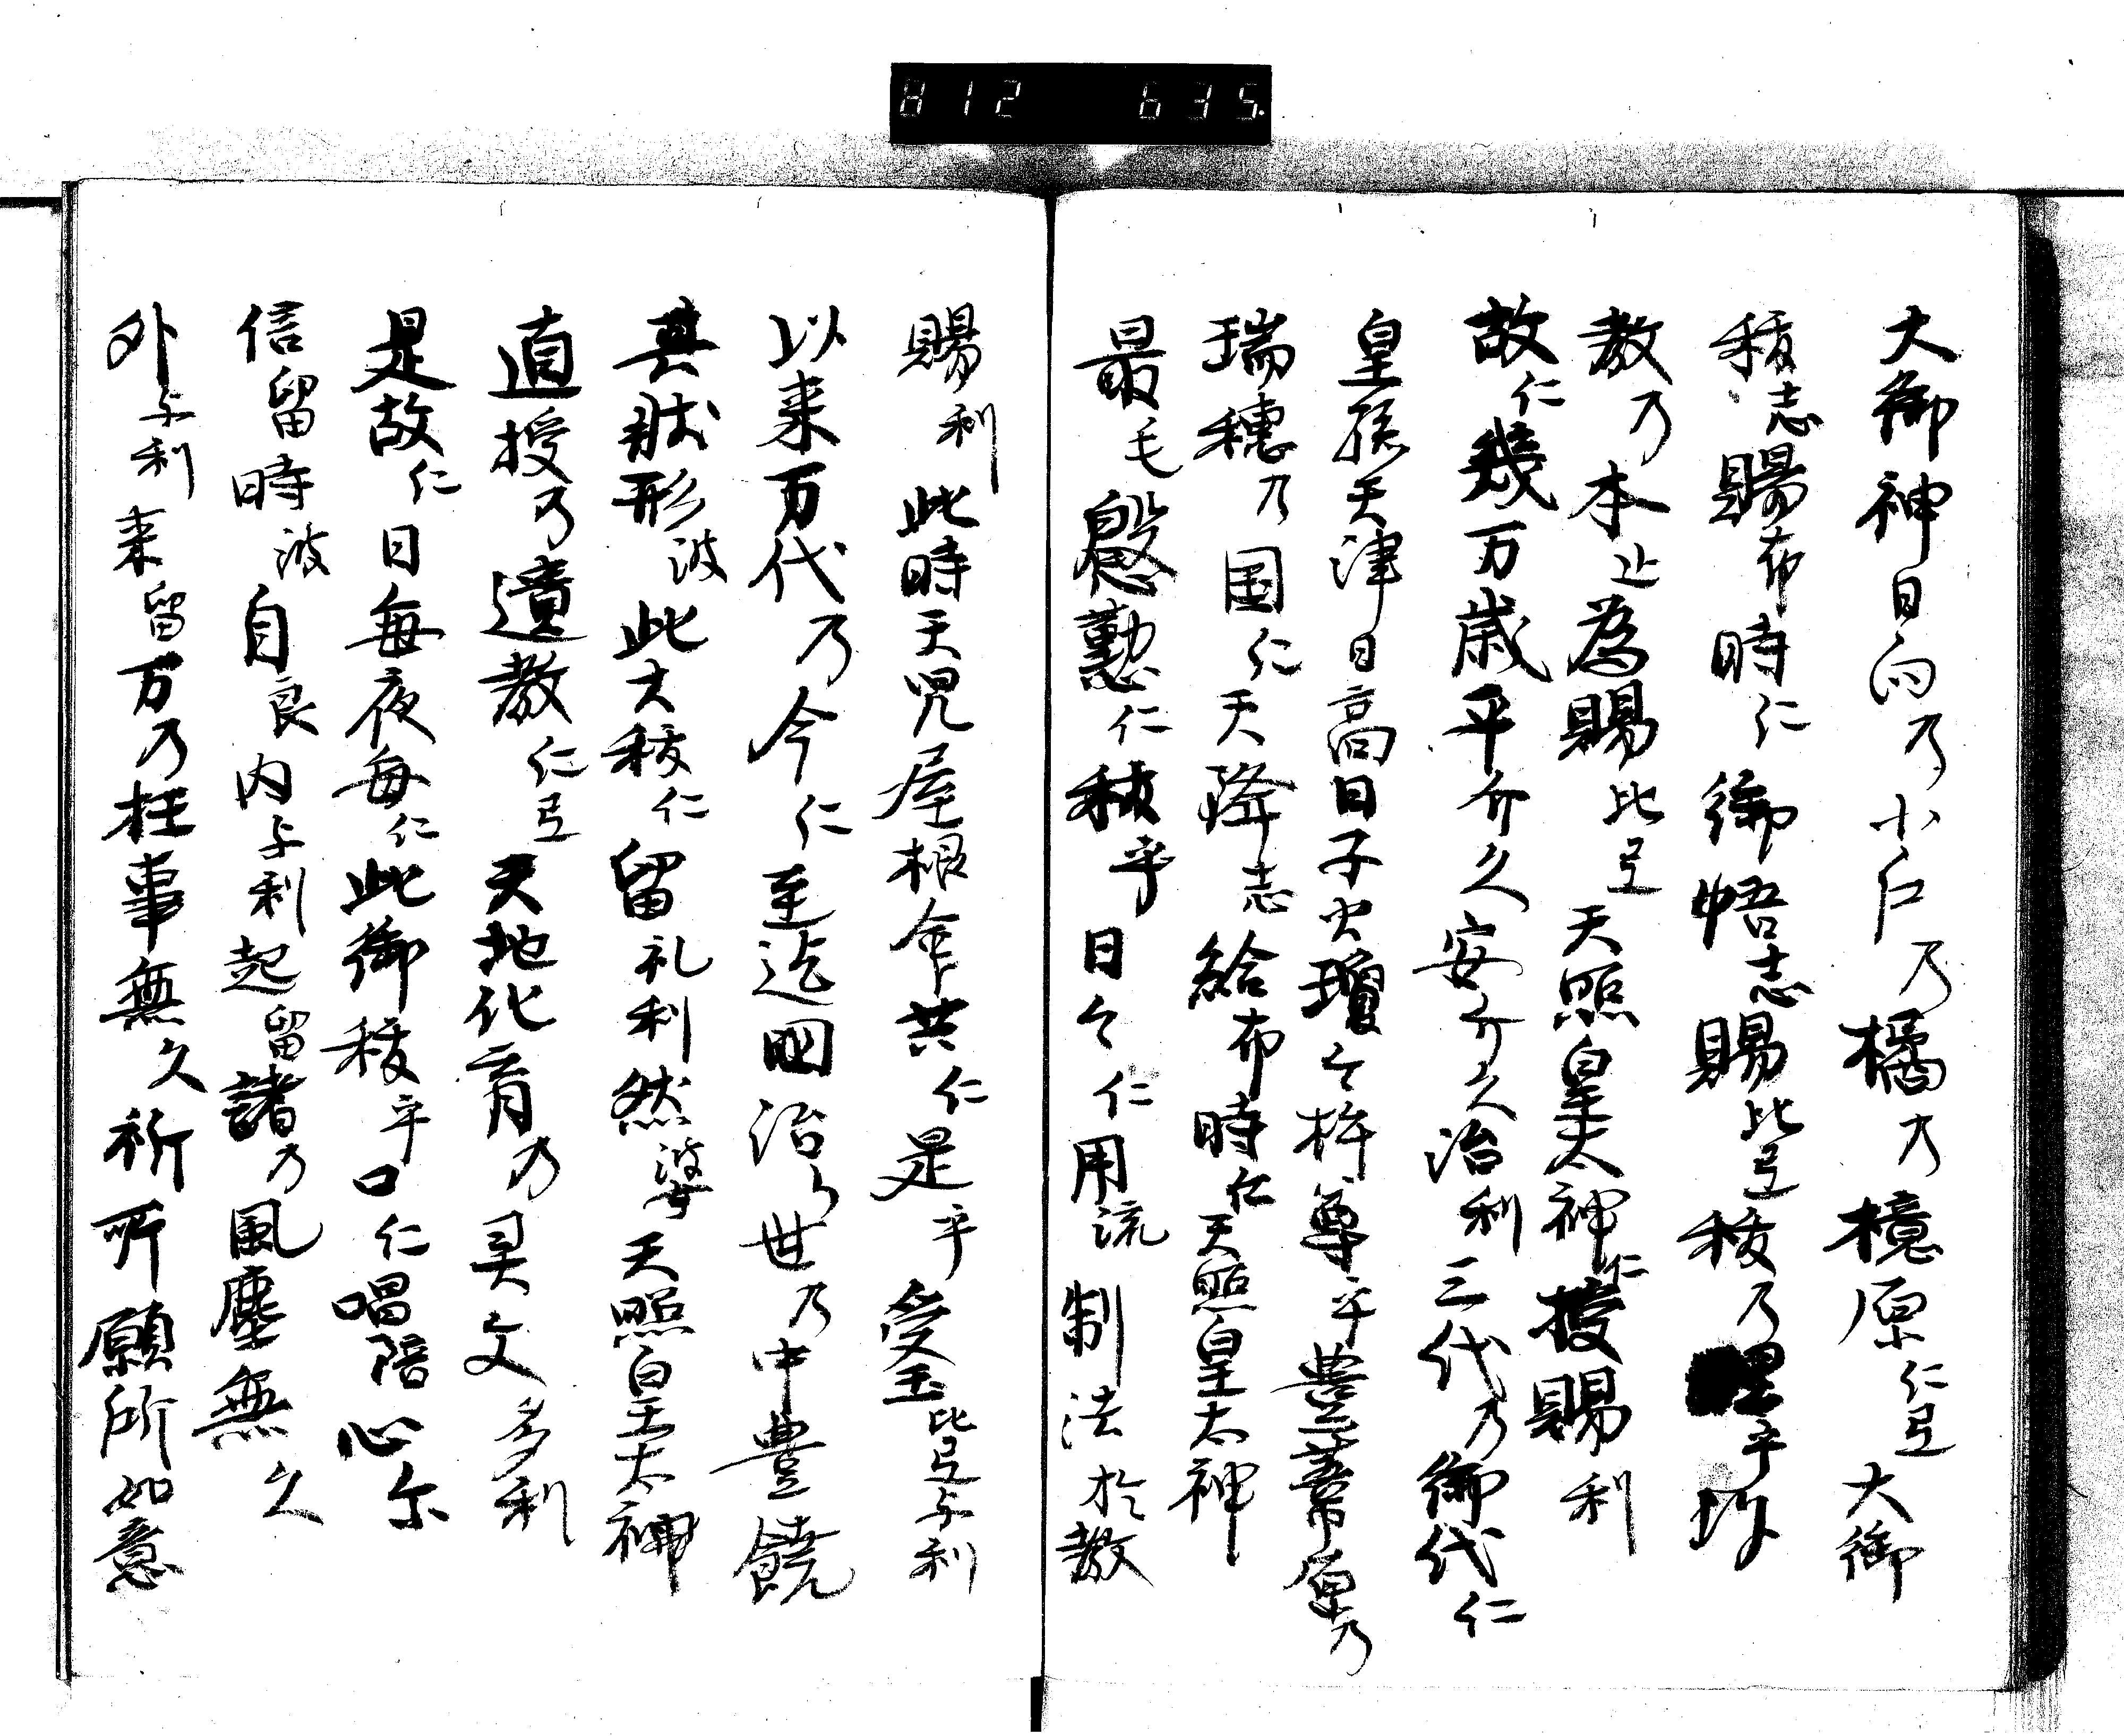 812 635.
大御神日向乃小戸乃橘乃檍原仁弖大御
秡志賜布時仁御悟志賜比弖秡乃理乎
教乃本止為賜比弖天照皇太神仁授賜利
故仁幾万歳平介久安介久治利三代乃御代仁
皇孫天津日高日子火瓊々杵尊乎豊葦原乃
瑞穂乃国仁天降志給布時仁天照皇太神
最毛慇懃仁秡乎日々仁用流制法於教
賜利此時天児屋根命共仁是乎受玉比弖与利
以来万代乃今仁至迄国治々世乃中豊饒
其状形波此大秡仁留礼利然婆天照皇太神
直授乃遺教仁弖天地化育乃灵文多利
是故仁日毎夜毎仁此御秡乎口仁唱陪心尓
信留時波自良内与利起留諸乃風塵無久
外与利来留万乃枉事無久祈所願所如意